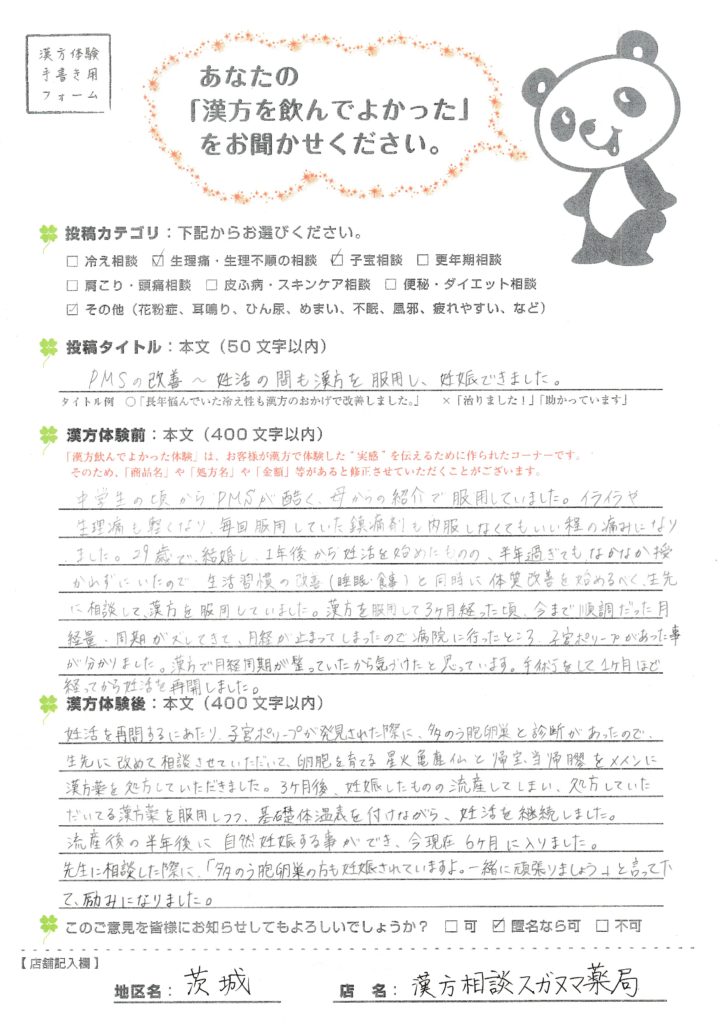 漢方体験
手書き用
フォーム
あなたの
「漢方を飲んでよかった」
をお聞かせください。
投稿カテゴリ：下記からお選びください。
□ 冷え相談 ☑ 生理痛・生理不順の相談 ☑ 子宝相談 □ 更年期相談
□ 肩こり・頭痛相談 □ 皮ふ病・スキンケア相談 □ 便秘・ダイエット相談
☑ その他（花粉症、耳鳴り、ひん尿、めまい、不眠、風邪、疲れやすい、など）
投稿タイトル：本文（50文字以内）
PMSの改善～妊活の間も漢方を服用し、妊娠できました。
タイトル例 ○「長年悩んでいた冷え性も漢方のおかげで改善しました。」 ×「治りました！」「助かっています」
漢方体験前：本文（400文字以内）
「漢方飲んでよかった体験」は、お客様が漢方で体験した“実感”を伝えるために作られたコーナーです。
そのため、「商品名」や「処方名」や「金額」等があると修正させていただくことがございます。
中学生の頃からPMSが酷く、母からの紹介で服用していました。イライラや
生理痛も軽くなり、毎回服用していた鎮痛剤も内服しなくてもいい程の痛みになり
ました。29歳で、結婚し、1年後から妊活を始めたものの、半年過ぎても、なかなか授
からずにいたので 生活習慣の改善（睡眠・食事）と同時に体質改善を始めるべく、先生
に相談して、漢方を服用していました。漢方を服用して3ヶ月経った頃、今まで順調だった月
経量・周期がズレてきて、月経が止まってしまったので病院に行ったところ 子宮ポリープがあった事
が分かりました。漢方で月経周期が整っていたから気づけたと思っています。手術をして1ヶ月ほど
経ってから妊活を再開しました。
漢方体験後：本文（400文字以内）
妊活を再開するにあたり、子宮ポリープが発見された際に、多のう胞卵巣と診断があったので、
先生に改めて相談させていただいて、卵胞を育てる 星火亀鹿仙 と 帰宝当帰膠 をメインに
漢方薬を処方していただきました。3ヶ月後、妊娠したものの 流産してしまい、処方していた
だいてる漢方薬を服用しつつ、基礎体温表を付けながら、妊活を継続しました。
流産後の半年後に 自然妊娠する事ができ、今現在 6ヶ月に入りました。
先生に相談した際に、「多のう胞卵巣の方も妊娠されていますよ。一緒に頑張りましょう」と言って下
て、励みになりました。
このご意見を皆様にお知らせしてもよろしいでしょうか？ □ 可 ☑ 匿名なら可 □ 不可
【店舗記入欄】
地区名：茨城 店 名：漢方相談スガヌマ薬局